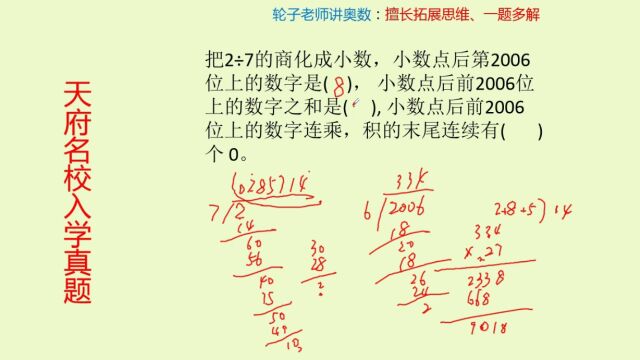 轮子老师讲奥数：擅长拓展思维、一题多解
天府名校入学真题
把2÷7的商化成小数，小数点后第2006
位上的数字是( 8 )， 小数点后前2006位
上的数字之和是( ), 小数点后前2006
位上的数字连乘，积的末尾连续有( )
个 0。
0285714
7 2
14
60
56
40
35
50
49
10
30
28
2
334
6 2006
18
20
18
26
24
2
2+8+5 14
334
× 27
2338
668
9018